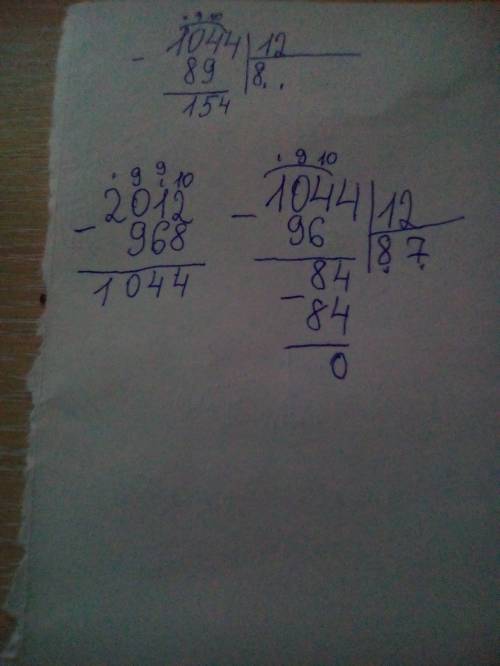 . 9 10
- 1044 | 12
89 | 8 . .
154
. 9 9 10
2012
- 968
1044
. 9 10
- 1044 | 12
96 | 8 7
84
- 84
0